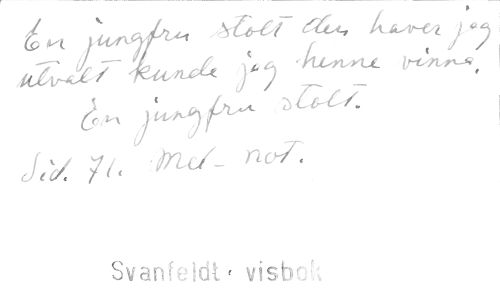 En jungfru stolt den haver jag
utvalt kunde jag henne vinna.
En jungfru stolt.
Sid. 71. Mel-not.
Svanfeldt. visbok